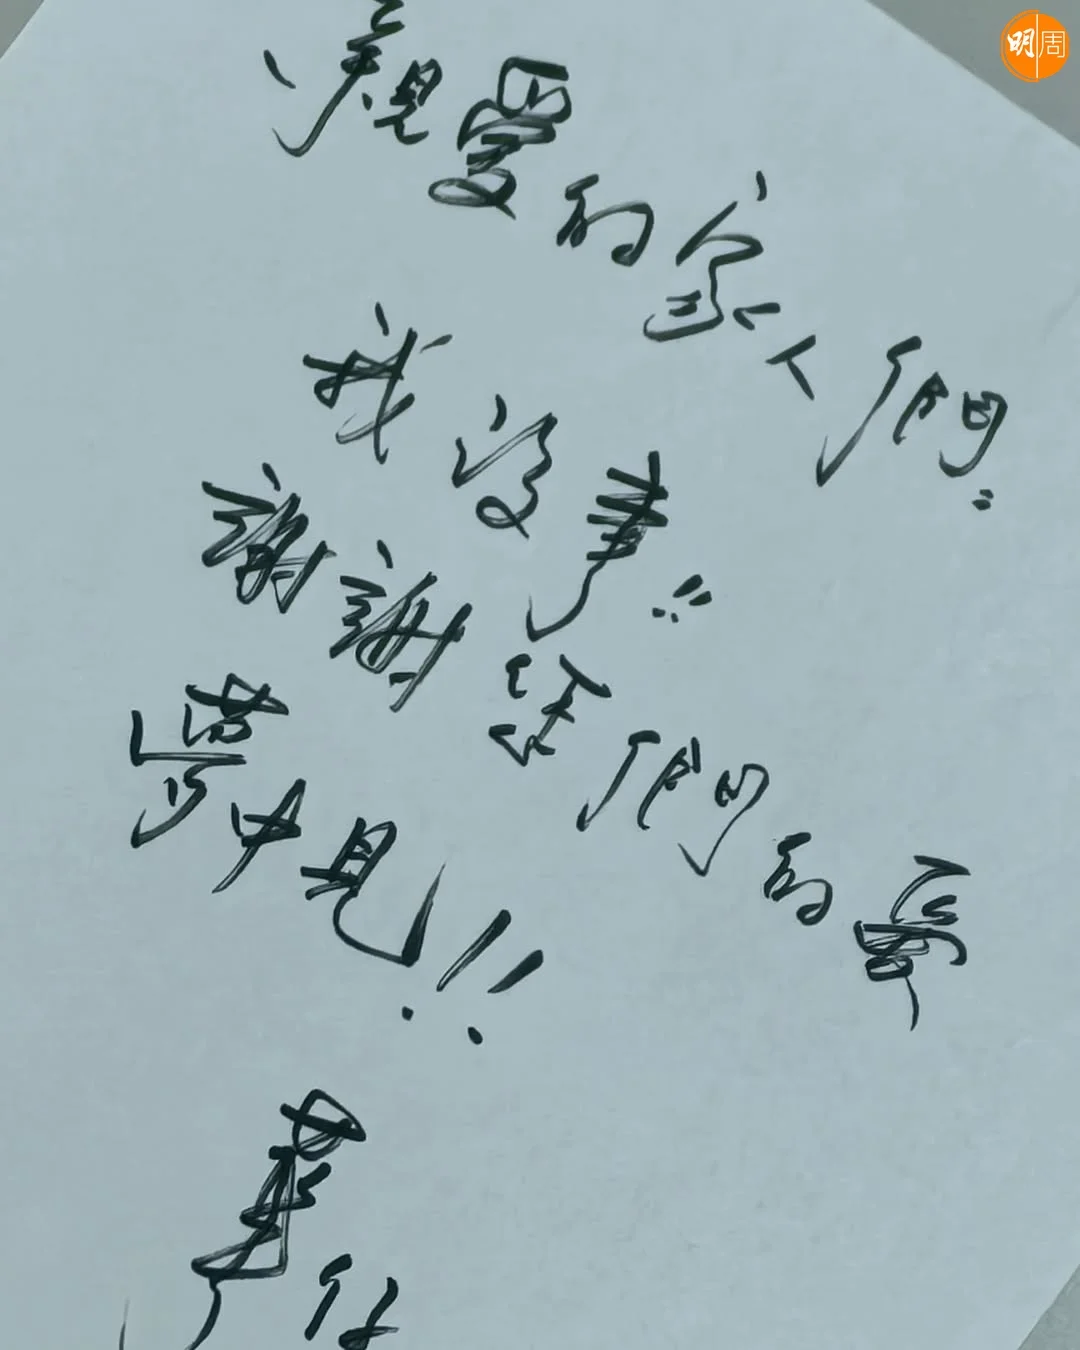 明周
親愛的家人們:
我沒事!!
謝謝您們的愛
夢中見!!
華仔